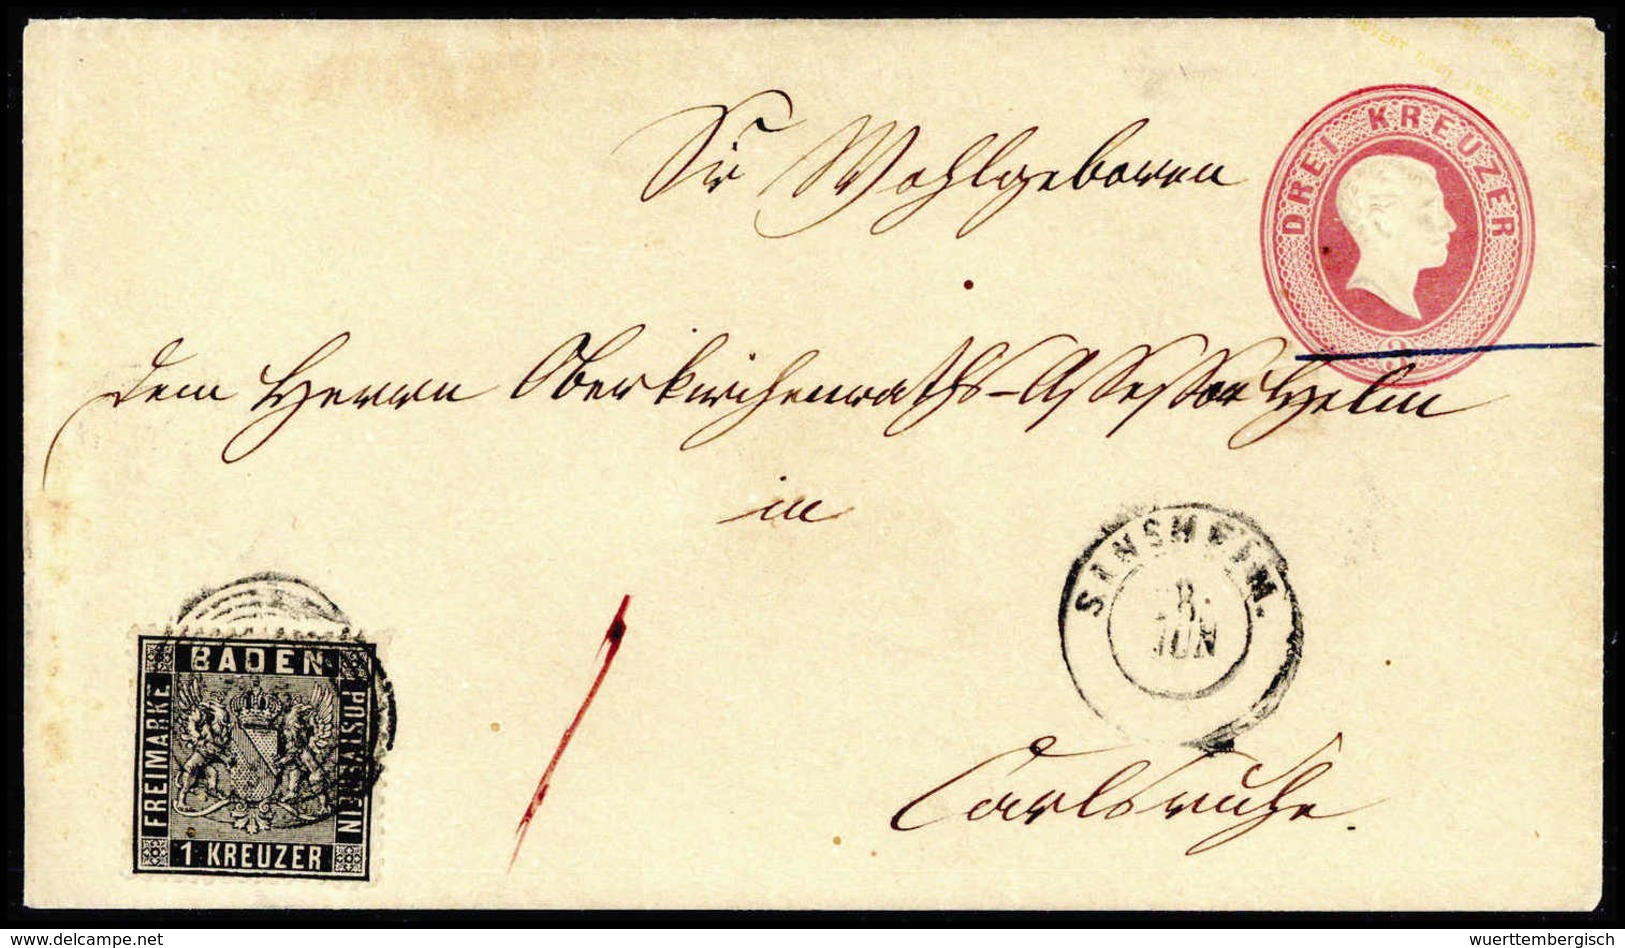 DREI KREUZER
3
Sr Wohlgeboren
dem Herrn Oberkirchenraths-Assessor Helm
in
SINSHEIM.
28.
JUN
Carlsruhe.
1
BADEN
FREIMARKE
POSTVEREIN
1 KREUZER
delcampe.net
wuerttembergisch